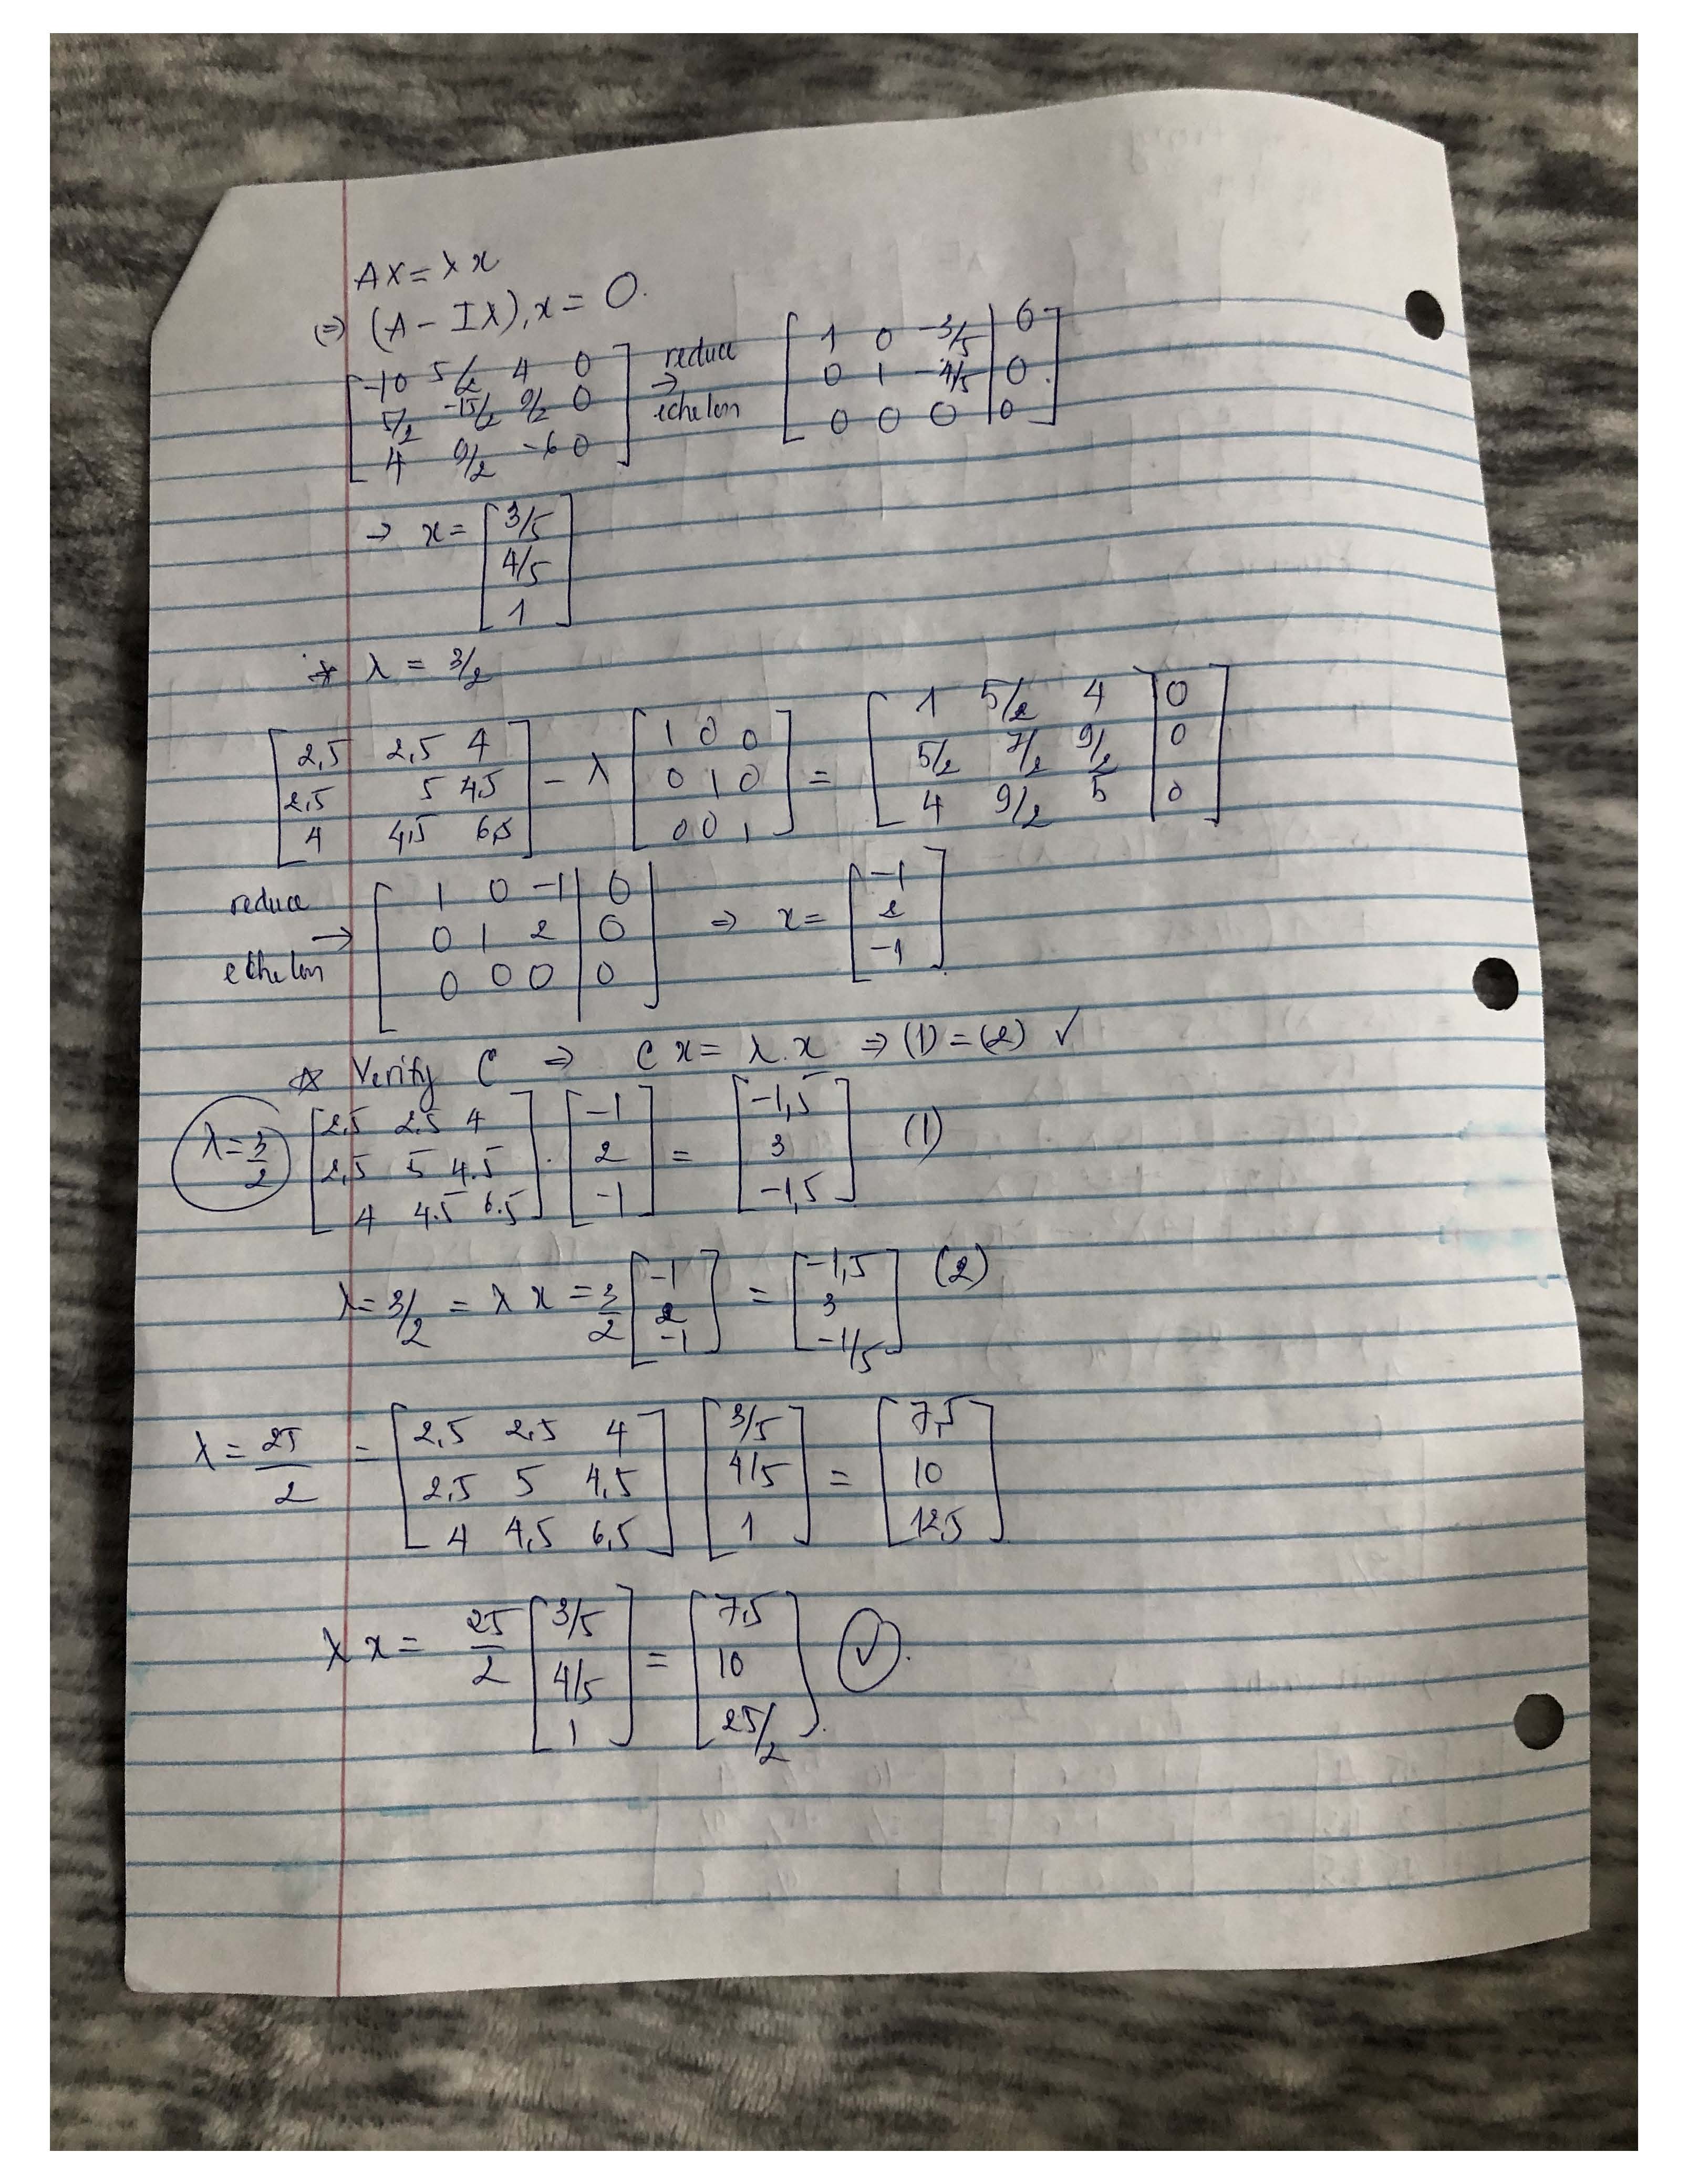 AX = λx
⇔ (A - Iλ).x = 0.
[-10 5/2 4 0; 5/2 -15/2 9/2 0; 4 9/2 -6 0] reduce → echelon [1 0 -3/5 | 0; 0 1 -4/5 | 0; 0 0 0 | 0]
→ x = [3/5; 4/5; 1]
* λ = 3/2
[2,5 2,5 4; 2,5 5 4,5; 4 4,5 6,5] - λ [1 0 0; 0 1 0; 0 0 1] = [1 5/2 4 | 0; 5/2 7/2 9/2 | 0; 4 9/2 5 | 0]
reduce → echelon [1 0 -1 | 0; 0 1 2 | 0; 0 0 0 | 0] ⇒ x = [-1; 2; -1]
☆ Verify C ⇒ C x = λ.x ⇒ (1) = (2) ✓
λ = 3/2 [2,5 2.5 4; 2,5 5 4.5; 4 4.5 6.5] . [-1; 2; -1] = [-1,5; 3; -1,5] (1)
λ = 3/2 = λ x = 3/2 [-1; 2; -1] = [-1,5; 3; -1/5] (2)
λ = 25/2 = [2,5 2,5 4; 2,5 5 4,5; 4 4,5 6,5] [3/5; 4/5; 1] = [7,5; 10; 12,5]
λ x = 25/2 [3/5; 4/5; 1] = [7,5; 10; 25/2] ✓.